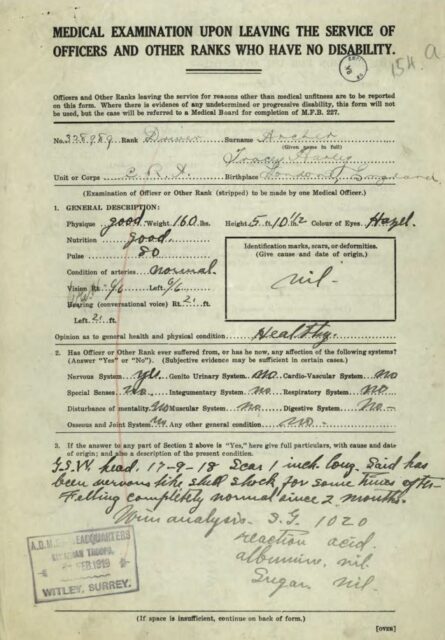 MEDICAL EXAMINATION UPON LEAVING THE SERVICE OF
OFFICERS AND OTHER RANKS WHO HAVE NO DISABILITY.
154. a
Officers and Other Ranks leaving the service for reasons other than medical unfitness are to be reported
on this form. Where there is evidence of any undetermined or progressive disability, this form will not
be used, but the case will be referred to a Medical Board for completion of M.F.B. 227.
No. 328989 Rank Driver Surname Archer
(Given name in full)
Unit or Corps C.R.T. Birthplace London England
(Examination of Officer or Other Rank (stripped) to be made by one Medical Officer.)
1. GENERAL DESCRIPTION:
Physique good. Weight 160 lbs. Height 5 ft. 10 1/2 Colour of Eyes Hazel.
Nutrition good.
Pulse 80
Condition of arteries normal.
Vision Rt. 6/6 Left 6/6
Hearing (conversational voice) Rt. 21 ft.
Left 21 ft.
Identification marks, scars, or deformities.
(Give cause and date of origin.)
nil -
Opinion as to general health and physical condition Healthy.
2. Has Officer or Other Rank ever suffered from, or has he now, any affection of the following systems?
(Answer "Yes" or "No"). (Subjective evidence must be sufficient in certain cases.)
Nervous System yes Genito Urinary System no. Cardio-Vascular System no
Special Senses no. Integumentary System no. Respiratory System no
Disturbance of mentality no Muscular System no Digestive System no -
Osseous and Joint System no Any other general condition no. -
3. If the answer to any part of Section 2 above is "Yes," here give full particulars, with cause and date
of origin; and also a description of the present condition.
G.S.W. head. 17-9-18 Scar 1 inch long. Said has
been nervous like shell shock for some times after
Felling completely normal since 2 months.
Urin analysis. S.G. 1020
reaction acid
albumine, nil
Sugar nil.
A.D.M.S. HEADQUARTERS
CANADIAN TROOPS,
FEB 1919
WITLEY, SURREY.
(If space is insufficient, continue on back of form.)
[OVER]